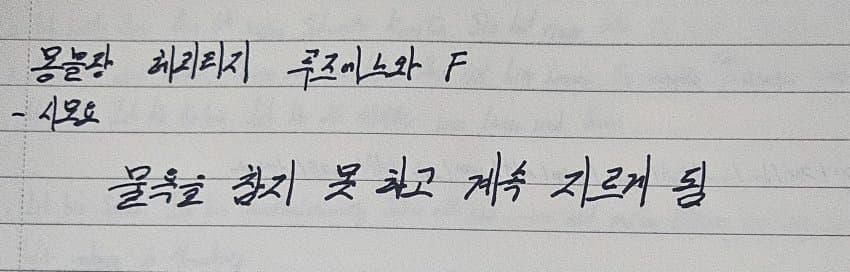 몽블랑 헤리티지 루즈에느와 F
- 시모요
물욕을 참지 못 하고 계속 지르게 됨